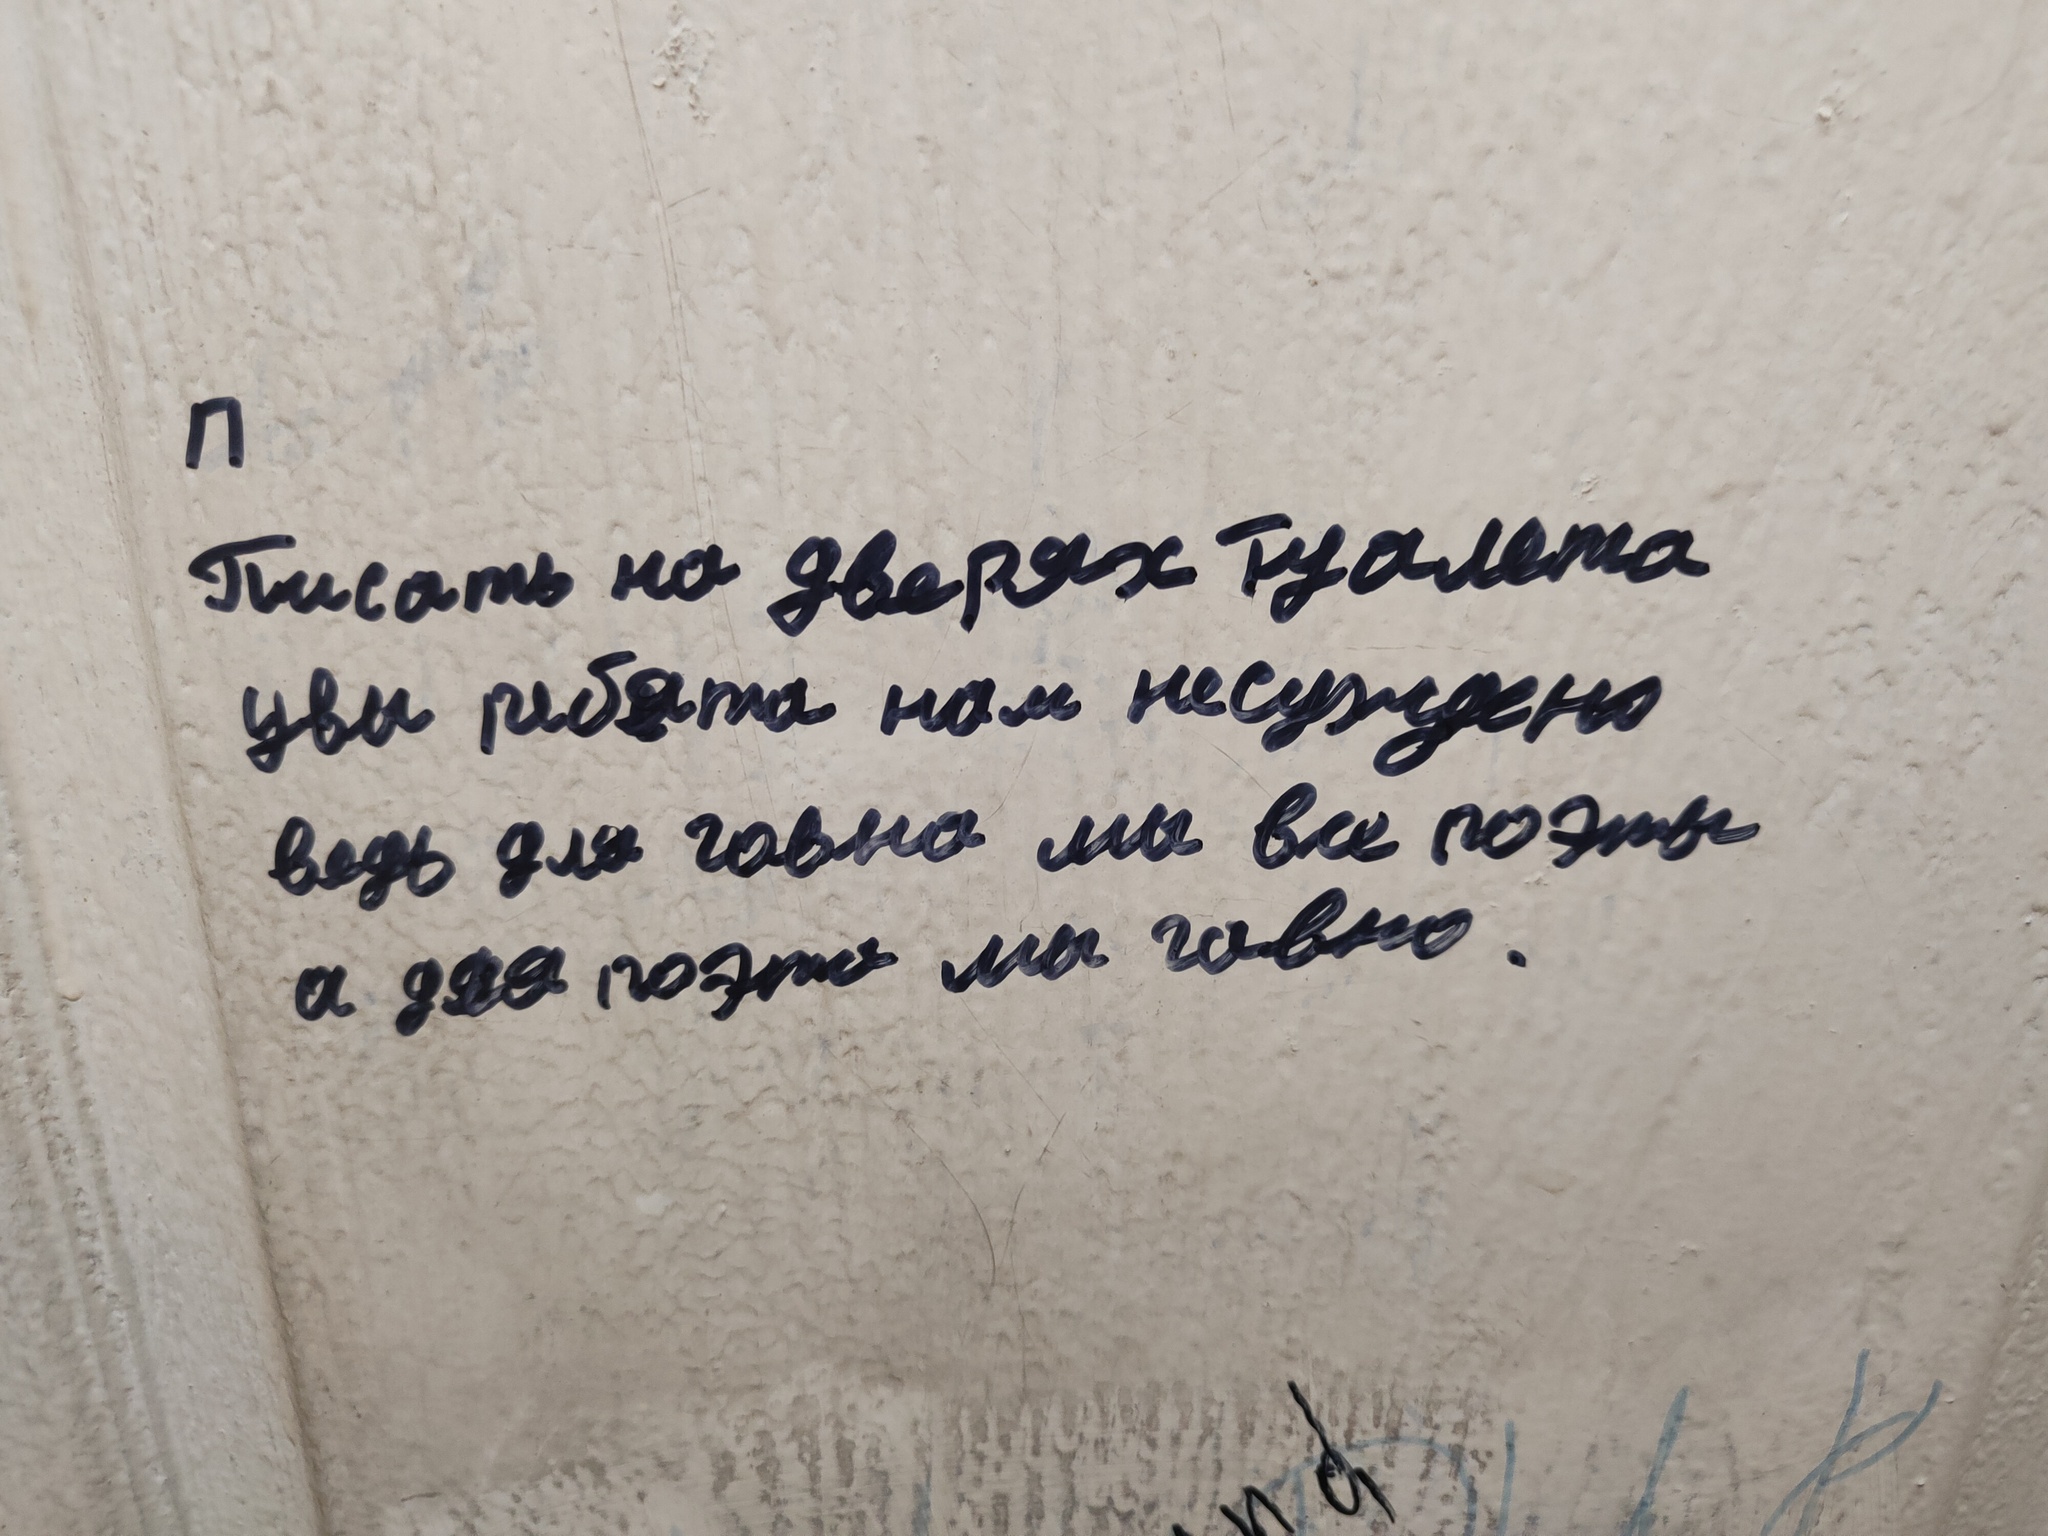 П
Писать на дверях туалета
увы ребята нам несуждено
ведь для говна мы все поэты
а для поэта мы говно.